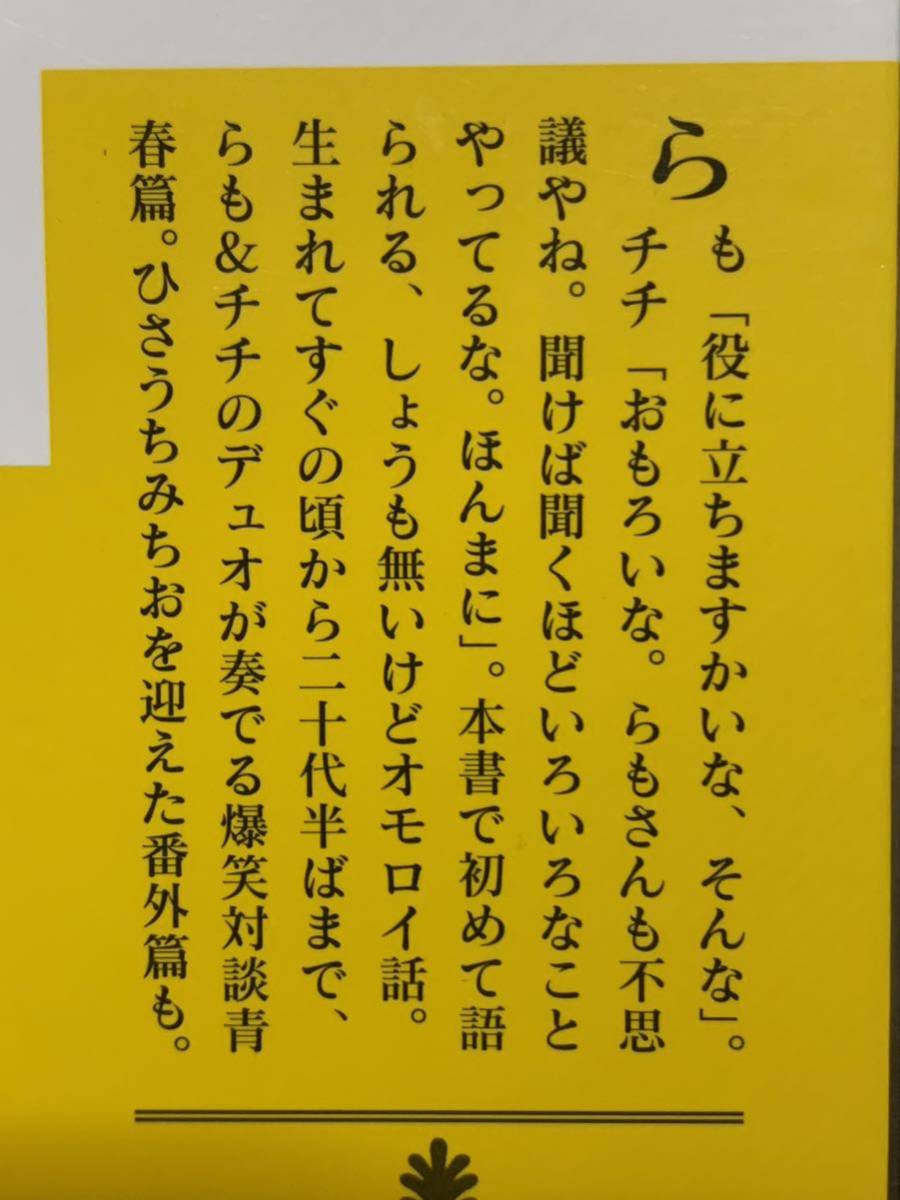 らも「役に立ちますかいな、そんな」。
チチ「おもろいな。らもさんも不思
議やね。聞けば聞くほどいろいろなこと
やってるな。ほんまに」。本書で初めて語
られる、しょうも無いけどオモロイ話。
生まれてすぐの頃から二十代半ばまで、
らも&チチのデュオが奏でる爆笑対談青
春篇。ひさうちみちおを迎えた番外篇も。